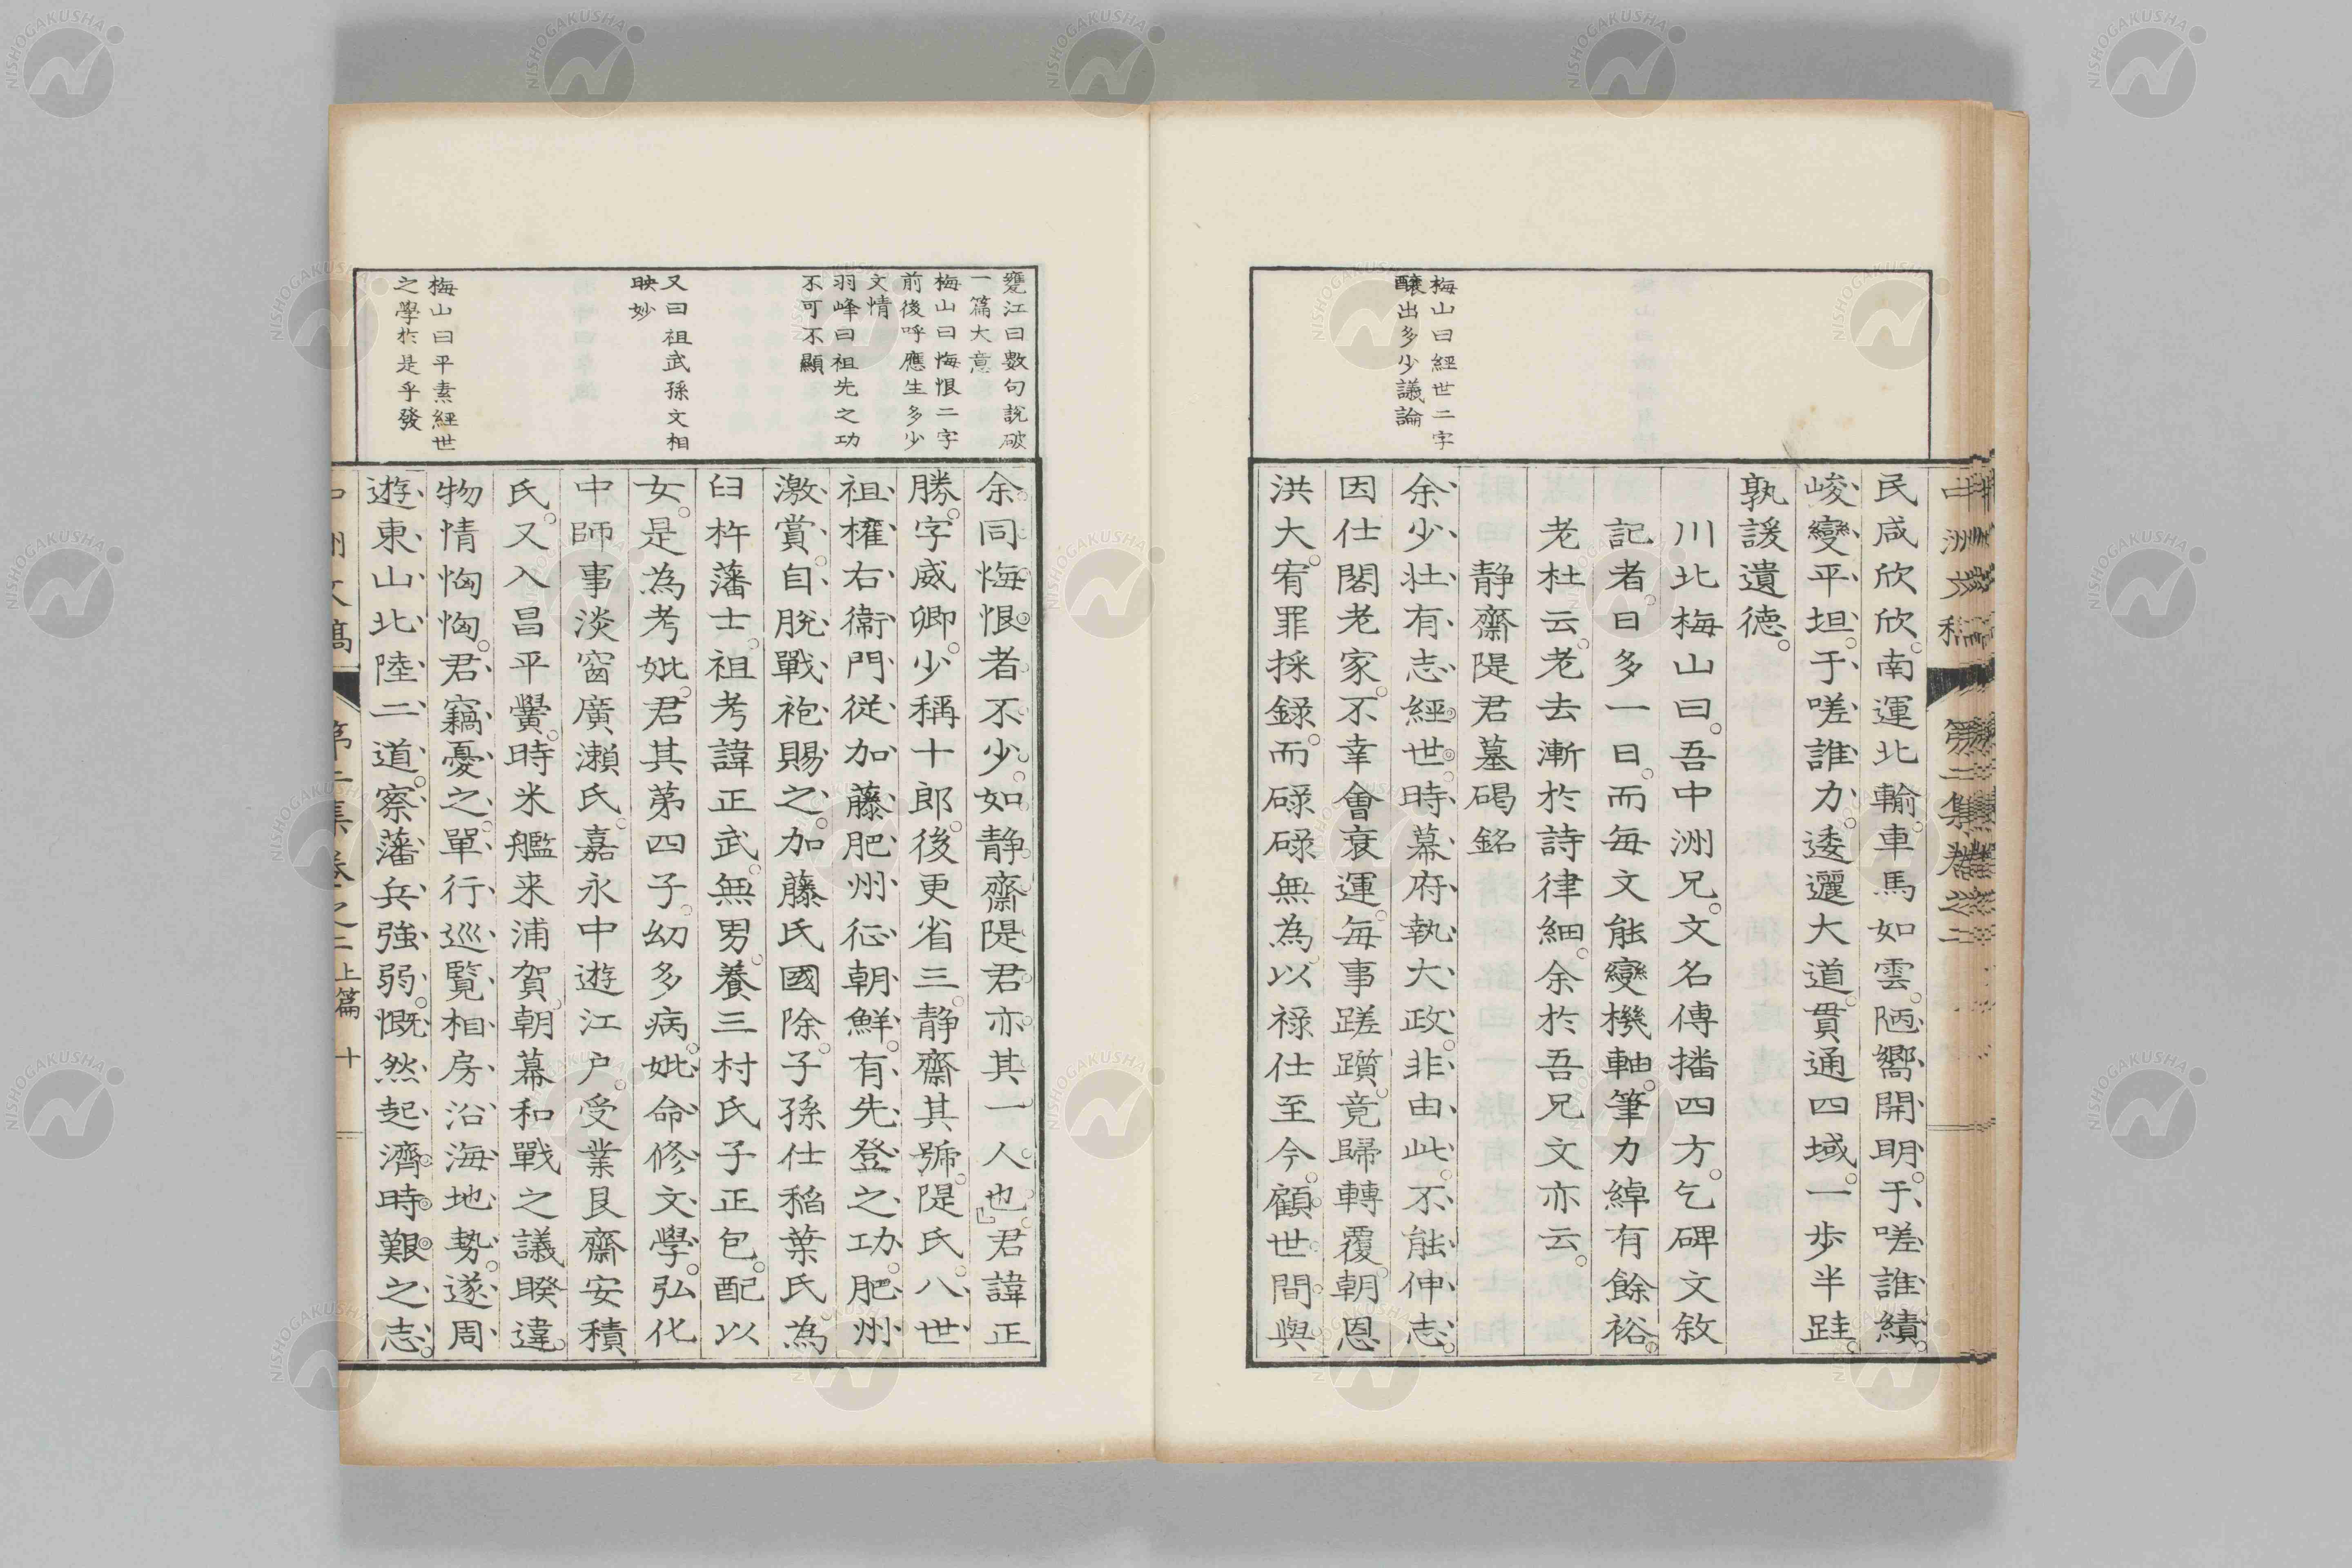 民咸欣欣。南運北輸。車馬如雲。陋嚮開明。于嗟誰績。
峻變平坦。于嗟誰力。逶邐大道。貫通四域。一歩半跬。
孰諼遺德。
川北梅山曰。吾中洲兄。文名傳播四方。乞碑文敘
記者。日多一日。而毎文能變機軸。筆力綽有餘裕。
老杜云。老去漸於詩律細。余於吾兄文亦云。
静齋隄君墓碣銘
余少壮有志經世。時幕府執大政。非由此。不能伸志。
因仕閣老家。不幸會衰運。毎事蹉躓。竟歸轉覆。朝恩
洪大。宥罪採録。而碌碌無為。以禄仕至今。顧世間與
梅山曰經世二字
醸出多少議論
余同悔恨者不少。如静齋隄君亦其一人也。君諱正
勝。字威卿。少稱十郎。後更省三。静齋其號。隄氏。八世
祖權右衛門從加藤肥州征朝鮮。有先登之功。肥州
激賞。自脱戰袍賜之。加藤氏國除。子孫仕稲葉氏為
臼杵藩士。祖考諱正武。無男。養三村氏子正包。配以
女。是為考妣。君其第四子。幼多病。妣命修文學。弘化
中師事淡窗廣瀬氏。嘉永中遊江戸。受業艮齋安積
氏。又入昌平黌。時米艦来浦賀。朝幕和戰之議睽違。
物情恟恟。君竊憂之。單行巡覧相房沿海地勢。遂周
遊東山北陸二道。察藩兵強弱。慨然起濟時艱之志。
甕江曰數句説破
一篇大意
梅山曰悔恨二字
前後呼應生多少
文情
羽峰曰祖先之功
不可不顯
又曰祖武孫文相
映妙
梅山曰平素經世
之學於是乎發
中洲文稿 第二集卷之二 上篇 十
NISHOGAKUSHA